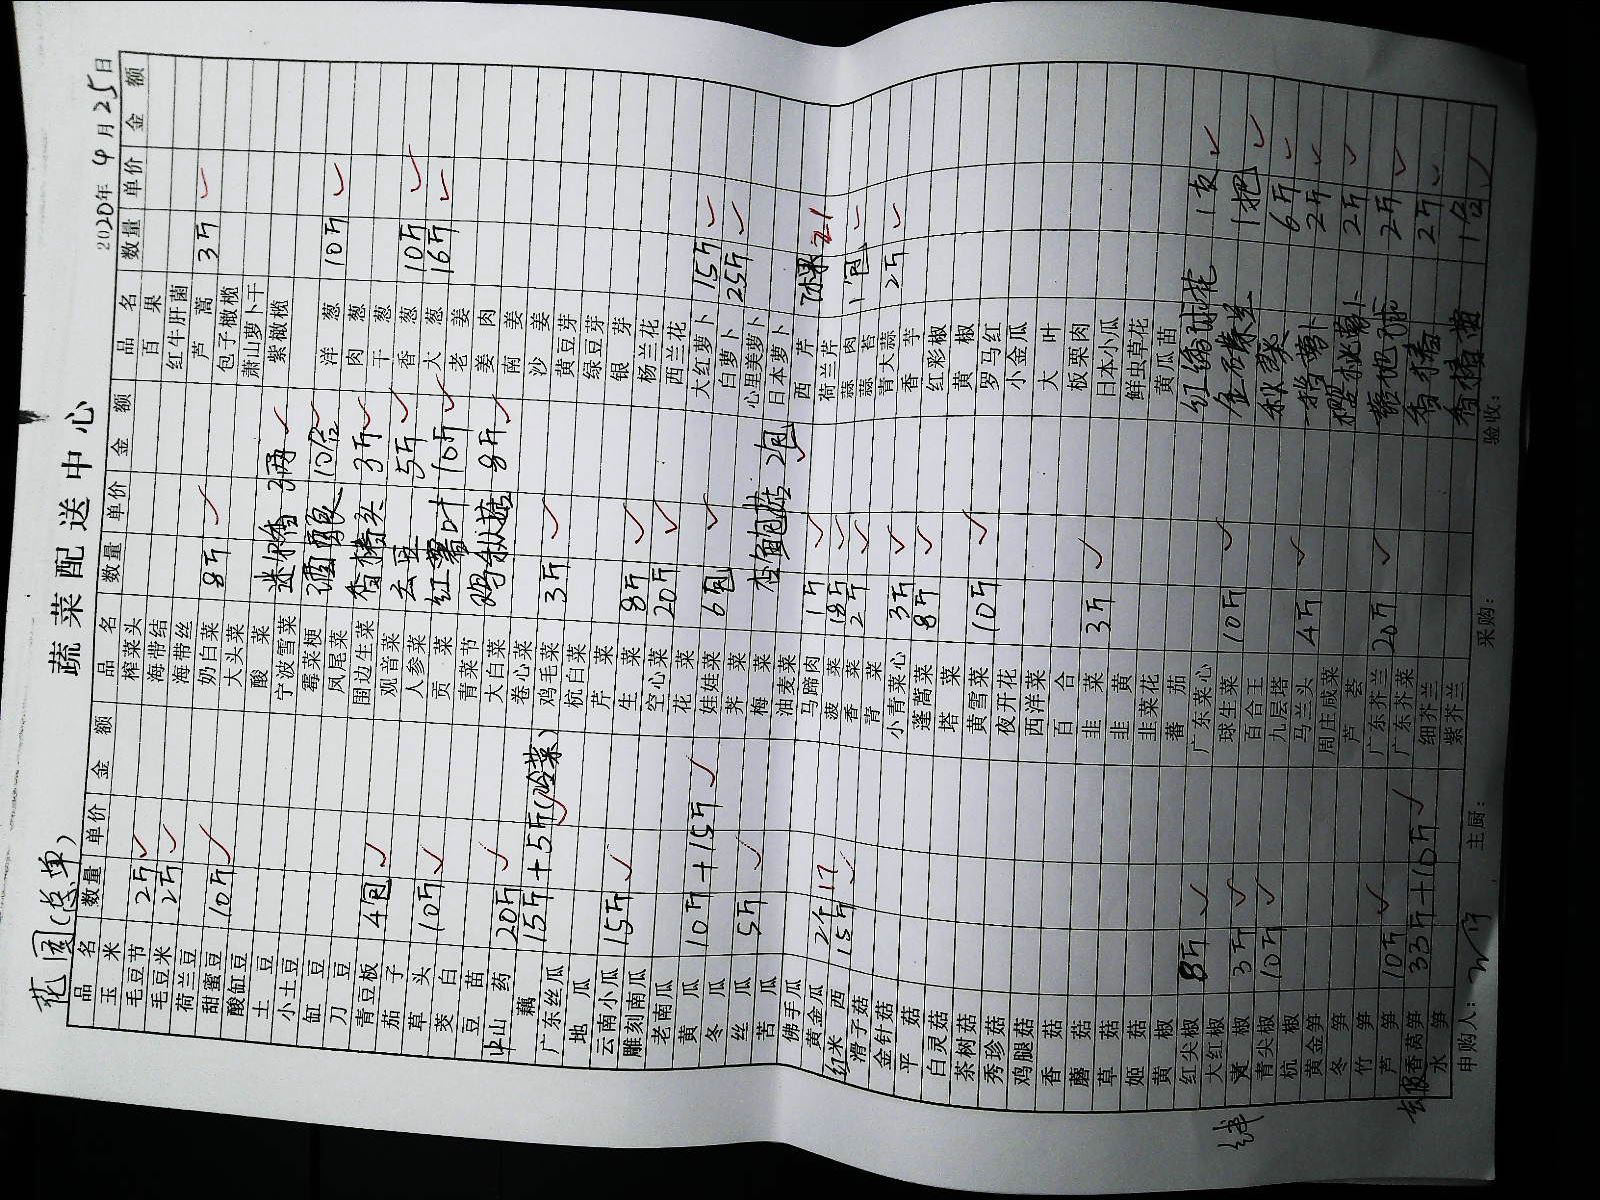 花园(总单)
蔬菜配送中心
2020年4月25日
品名 数量 单价 金额
玉米
毛豆节 2斤
毛豆米 2斤
荷兰豆
甜蜜豆 10斤
酸缸豆
土豆
小土豆
缸豆
刀豆
青豆板 4包
茄子
草头 10斤
茭白
豆苗
山药 20斤
藕 15斤+5斤(冷菜)
广东丝瓜
地瓜
云南小瓜 15斤
雕刻南瓜
老南瓜
黄瓜 10斤+15斤
冬瓜
丝瓜 5斤
苦瓜
佛手瓜
黄金瓜 2个 17
红米西 15斤
滑子菇
金针菇
平菇
白灵菇
茶树菇
秀珍菇
鸡腿菇
香菇
蘑菇
草菇
姬菇
黄椒
红尖椒 8斤
大红椒
椒 3斤
青尖椒 10斤
杭椒
黄金笋
冬笋
竹笋
芦笋 10斤
香莴笋 33斤+10斤
水笋
品名 数量 单价 金额
榨菜头
海带结
海带丝
奶白菜 8斤
大头菜
酸菜
宁波雪菜 迷迭香 3两
霉菜梗
凤尾菜
围边生菜 香椿头 3斤
观音菜 云豆 5斤
人参菜
贡菜 红薯叶 10斤
青菜节
大白菜 鸡枞菇 8斤
卷心菜
鸡毛菜 3斤
杭白菜
芹菜
生菜 8斤
空心菜 20斤
花菜
娃娃菜 6包
荠菜
梅菜 杏鲍菇 2包
油麦菜
马蹄肉 1斤
菠菜 18斤
香菜 2斤
青菜
小青菜心 3斤
蓬蒿菜 8斤
塔菜
黄雪菜 10斤
夜开花
西洋菜
百合
韭菜 3斤
韭黄
韭菜花
蕃茄
广东菜心
球生菜 10斤
百合王
九层塔
马兰头 4斤
周庄咸菜
芦荟
广东芥兰 20斤
广东芥菜
细芥兰
紫芥兰
品名 数量 单价 金额
百果
红牛肝菌
芦蒿 3斤
包子橄榄
萧山萝卜干
紫橄榄
洋葱 10斤
肉葱
干葱
香葱 10斤
大葱 16斤
老姜
姜肉
南姜
沙姜
黄豆芽
绿豆芽
银芽
杨兰花
西兰花
大红萝卜 15斤
白萝卜 25斤
心里美萝卜
日本萝卜
西芹 21
荷兰芹
蒜肉 1包
蒜苔
青大蒜 2斤
香芋
红彩椒
黄椒
罗马红
小金瓜
大叶
板栗肉
日本小瓜
鲜虫草花
黄瓜苗
红绣球花 1支
1把
秋葵 6斤
萝卜 2斤
樱桃萝卜 2斤
2斤
香椿 2斤
香椿苗 1盒
申购人:
主厨:
采购:
验收: